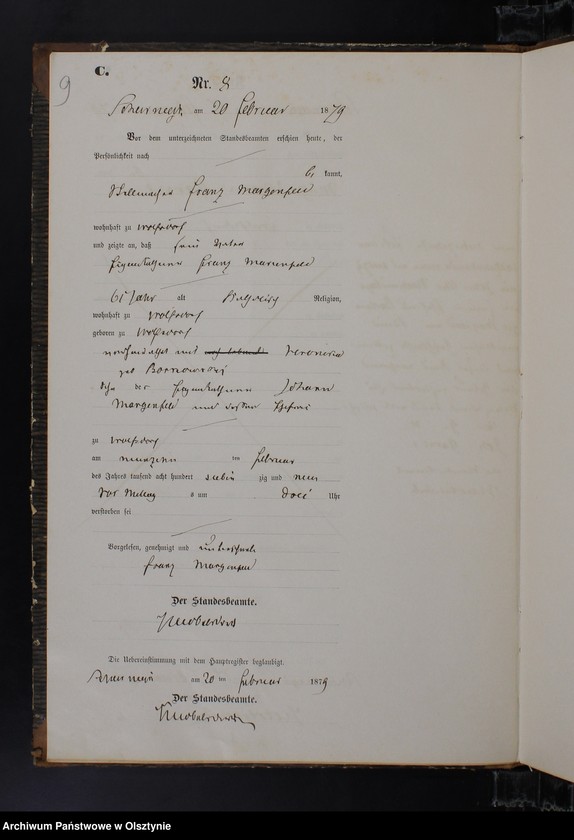 9
C.
Nr. 8
am 20 Februar 1879
Vor dem unterzeichneten Standesbeamten erschien heute, der
Persönlichkeit nach
kannt,
Stellmacher Franz Margenfeld
wohnhaft zu Wolfsdorf
und zeigte an, daß sein Vater
Eigenkäthner Franz Marienfeld
61 Jahr alt katholisch Religion,
wohnhaft zu Wolfsdorf
geboren zu Wolfsdorf
verheirathet mit Veronica
geb
Sohn der Eigenkäthner Johann
Margenfeld und dessen Ehefrau
zu Wolfsdorf
am neunzehn ten Februar
des Jahres tausend acht hundert siebzig und neun
Vor Mittag s um drei Uhr
verstorben sei
Vorgelesen, genehmigt und
Franz Margenfeld
Der Standesbeamte.
Die Uebereinstimmung mit dem Hauptregister beglaubigt.
am 20 ten Februar 1879
Der Standesbeamte.
Archiwum Państwowe w Olsztynie